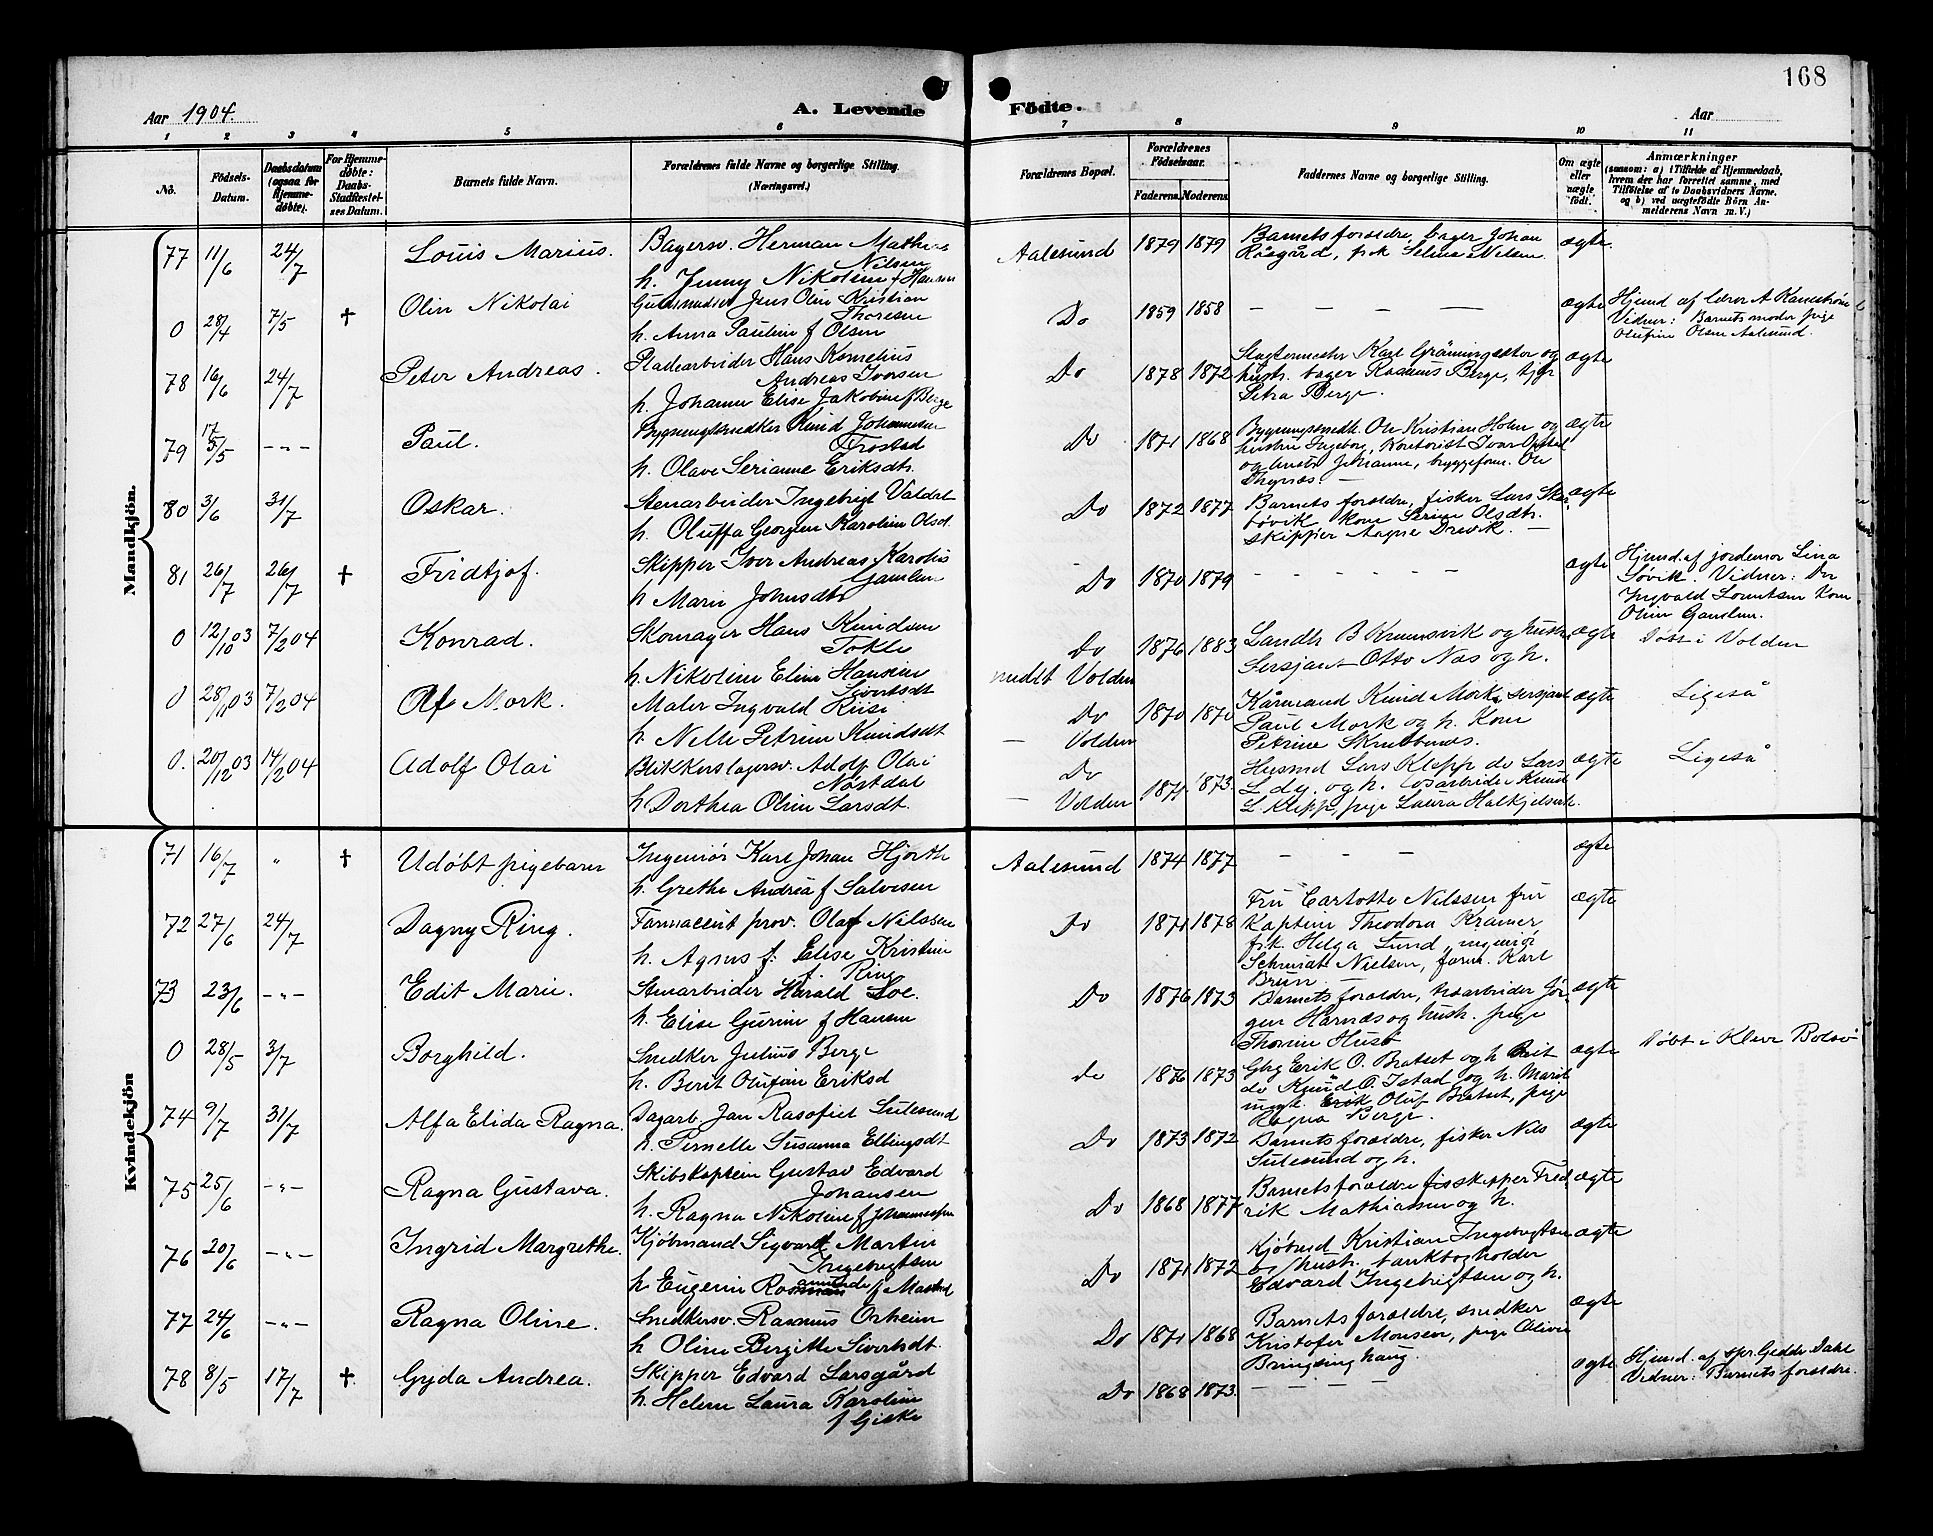 168
Aar 1904.
A. Levende Födte.
Aar
1 2 3 4 5 6 7 8 9 10 11
No.
Födsels-Datum.
Daabsdatum (ogsaa for Hjemmedøbte).
For Hjemmedøbte: Daabs-Stadfæstelses Datum.
Barnets fulde Navn.
Forældrenes fulde Navne og borgerlige Stilling. (Næringsvei.)
Forældrenes Bopæl.
Forældrenes Födselsaar.
Faderens. Moderens.
Faddernes Navne og borgerlige Stilling.
Om ægte eller uægte födt.
Anmærkninger
(saasom: a) i Tilfælde af Hjemmedaab, hvem der har forrettet samme, med Tilföielse af to Daabsvidners Navne. og b) ved uægtefödte Börn Anmelderens Navn m. V.)
Mandkjön.
77 11/6 24/7 Louis Marius. Bagersv. Herman Mathias Nilsen
h. Jenny Nikoline f Hansen
Aalesund 1879 1879 Barnets forældre, bager Johan
Råsgård, frk Selma Nelsen
ægte
0 28/4 7/5 † Olin Nikolai Guldsmedsv Jens Olin Kristian
Thoresen
h. Anna Pauline f Olsen
Do 1859 1858 — — — — ægte
Hjemd af lærer A
Vidner: Barnets moder pige
Olufine Olsen Aalesund.
78 16/6 24/7 Peter Andreas. Pladearbeider Hans Kornelius
Andreas Iversen
h. Johanne Elise Jakobine f Berge
Do 1878 1872 Slagtermester Karl Grönningsæter og
hustr. bager Rasmus Berge, tjgr
Petra Berge.
ægte
79 17/5 -"- Paul. Bygningssnedker Knud Johannesen
Frostad
h. Olave Serianne Eriksdtr
Do 1871 1868 Bygningssnedk. Ole Kristian Holm og
hustru Ingeborg, Kontorist Ivar
og hustr Johanne, bryggeform. Ole
ægte
80 3/6 31/7 Oskar. Stenarbeider Ingebrigt Valdal
h. Oluffa Georgen Karoline Olsd.
Do 1872 1877 Barnets forældre, fisker Lars
bøvik, kone Serine Olsdtr.
skipper Aagne Drevik. —
ægte
81 26/7 26/7 † Fridtjof. Skipper Iver Andreas Karolus
Gamlem
h Marie Johnsdtr
Do 1870 1879 - - - - - - ægte
Hjemd af jordemor Lina
Søvik. Vidner: Ole
Ingvald Lorentsen kone
Oline Gamlem.
0 12/10 03 7/2 04 Konrad. Skomager Hans Knudsen
Tokle
h. Nikoline Eline Hansine
Sivertsdt
Do
midlt Volden
1876 1883 Landh B Krumsvik og hustr
Sersjant Otto Næs og h.
ægte Døbt i Volden
0 28/11 03 7/2 04 Olaf Mork. Maler Ingvald Riise
h. Nelle Petrine Knudsdt
Do
— Volden
1870 1870 Kårmand Knud Mork, sersjant
Paul Mork og h. Kone
Petrine Skrubbenes.
ægte Ligeså
0. 20/12 03 14/2 04 Adolf Olai Blikkenslagersv. Adolf Olai
Nörstdal
h Dorthea Oline Larsdt.
Do
— Volden
1871. 1873. Husmd Lars Klepp do Lars
L. do og h. Losarbeider Knud
L. Klepp, pige Laura Halkjelsvik.
ægte Ligeså
Kvindekjön
71 16/7 " † Udøbt pigebarn Ingeniör Karl Johan Hjorth
h. Grethe Andrea f Salvesen
Aalesund 1874 1877 — — — ægte
72 27/6 24/7 Dagny Ring. Farmaceut prov. Olaf Nilssen
h. Agnes f. Elise Kristine
f. Ring
Do 1871 1878 Fru Carlotte Nilssen fru
Kaptein Theodora Kramer
frk. Helga Lund, ingeniör
Schmidt Nielsen, farm. Karl
Brun —
ægte
73 23/6 -"- Edit Marie. Stenarbeider Harald Soe.
h. Elise Gurine f Hansen
Do 1876 1873 Barnets forældre, husarbeider Jör-
gen Harnæs og hust. pige
Thomine Husø
ægte
0 28/5 3/7 Borghild. Snedker Julius Berge
h. Berit Olufine Eriksd
do 1876 1873 Gbg Erik O. Bratset og h Berit
do Knud O. Istad og h. Marit
ungk. Erik Oluf Bratset, pige
Ragna Berge.
ægte Døbt i Kleve Bolsø
74 9/7 31/7 Alfa Elida Ragna. Dagarb. Jan Rasofiel Sulesund
h. Pernelle Susanna Ellingsdt
Do 1873 1872 Barnets forældre, fisker Nils
Sulesund og h.
ægte
75 25/6 -"- Ragna Gustava. Skibskaptein Gustav Edvard
Johansen
h. Ragna Nikoline f Johannessen
Do 1868 1877 Barnets forældre skipper Fred-
rik Mathiassen og h.
ægte
76 20/6 -"- Ingrid Margrethe. Kjöbmand Sigvard Martin
Ingebrigtsen
h Eugenie Rosamunde f Mastad
Do 1871 1872 Kjöbmd Kristian Ingebrigtsen
og hustr. bankbogholder
Edvard Ingebrigtsen og h.
ægte
77 24/6 -"- Ragna Oline. Snedkersv. Rasmus Orheim
h Oline Bergitte Sivertsdt.
Do 1871 1868 Barnets forældre, snedker
Kristofer Monsen, pige Olivie
Bringsinghaug.
ægte
78 8/5 17/7 † Gyda Andrea. Skipper Edvard Larsgård
h. Helene Laura Karoline
f Giske
Do 1868 1873. — — — — ægte
Hjemd. af spr. Gedde Dahl
Vidner: Barnets forældre.